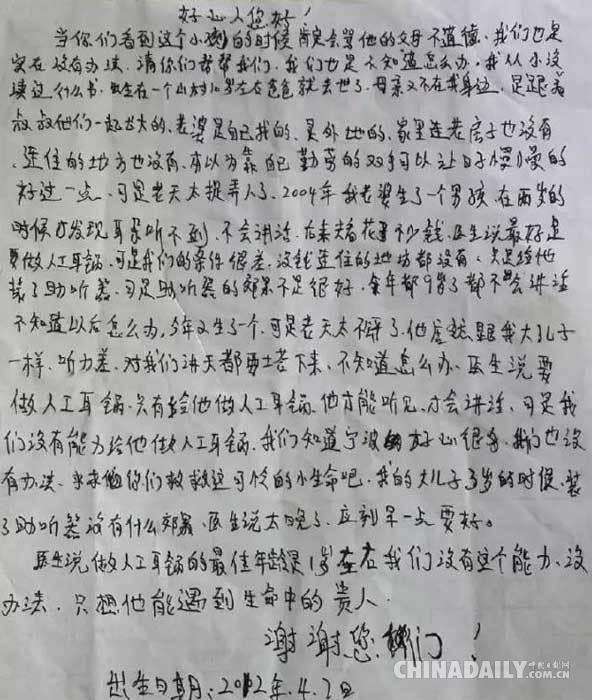 好心人您好！
当你们看到这个小孩的时候肯定会骂他的父母不道德，我们也是
实在没有办法，请你们帮帮我们，我们也是不知道怎么办，我从小没
读过什么书，出生在一个山村，10岁左右爸爸就去世了，母亲又不在我身边，是跟着
叔叔他们一起长大的，老婆是自己找的、是外地的，家里连老房子也没有
，连住的地方也没有，本以为靠自己勤劳的双手可以让日子慢慢的
好过一点，可是老天太捉弄人了，2004年我老婆生了一个男孩，在两岁的
时候才发现耳朵听不到，不会讲话，后来也花了不少钱，医生说最好是
要做人工耳蜗，可是我们的条件很差，没钱连住的地方都没有，只是给他
装了助听器，可是助听器的效果不是很好，今年都9岁了都不会讲话
不知道以后怎么办，今年又生了一个，可是老天太不公平了，他居然跟我大儿子
一样，听力差，对我们讲天都要塌下来，不知道怎么办，医生说要
做人工耳蜗，只有给他做人工耳蜗，他才能听见，才会讲话，可是我
们没有能力给他做人工耳蜗，我们知道宁波的好心很多，我们也没
有办法，求求你们救救这可怜的小生命吧，我的大儿子3岁的时候，装
了助听器没有什么效果，医生说太晚了，应到早一点要好。
医生说做人工耳蜗的最佳年龄是1岁左右我们没有这个能力、没
办法，只想他能遇到生命中的贵人
谢谢您们！
出生日期：2012年.4.2日
CHINADAILY 中国日报网
.COM.CN